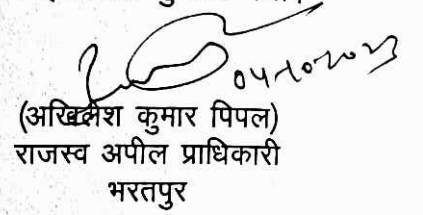 04-10-2023
(अखिलेश कुमार पिपल)
राजस्व अपील प्राधिकारी
भरतपुर